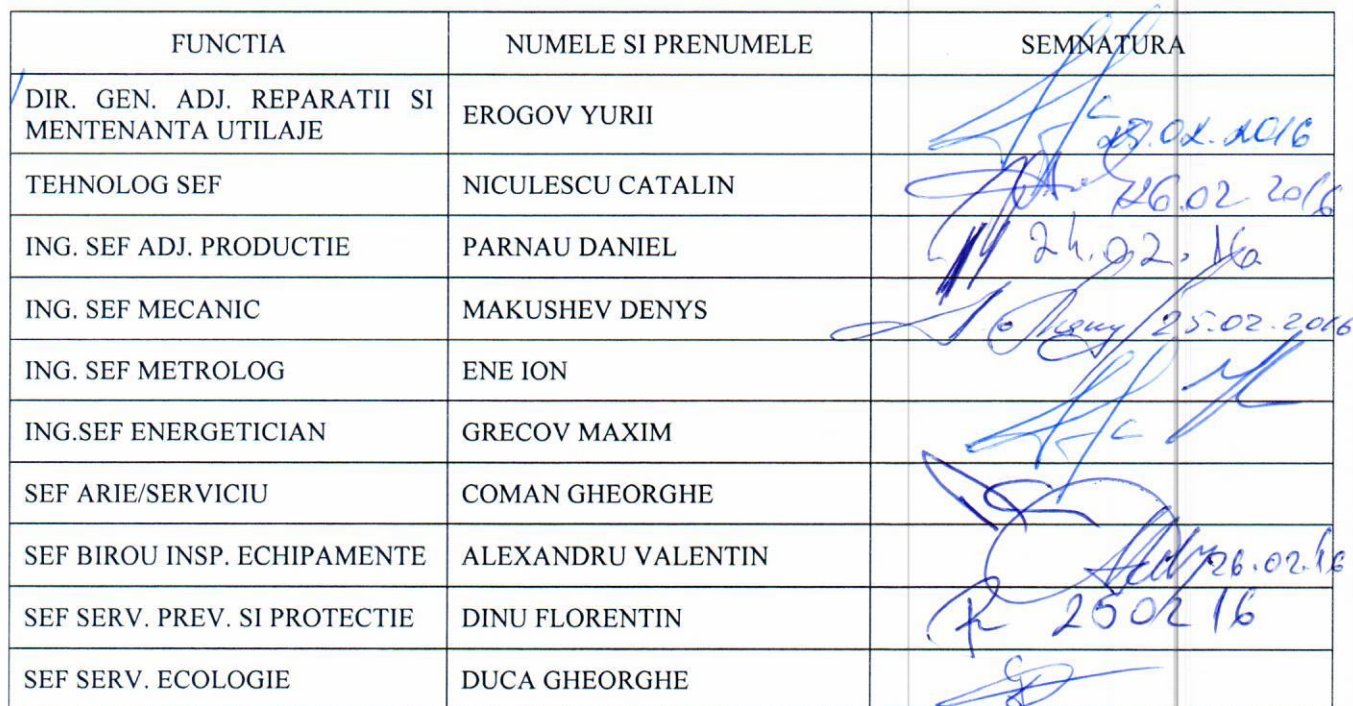 FUNCTIA NUMELE SI PRENUMELE SEMNATURA
DIR. GEN. ADJ. REPARATII SI
MENTENANTA UTILAJE EROGOV YURII .02.2016
TEHNOLOG SEF NICULESCU CATALIN 26.02.2016
ING. SEF ADJ. PRODUCTIE PARNAU DANIEL 24.02.16
ING. SEF MECANIC MAKUSHEV DENYS 25.02.2016
ING. SEF METROLOG ENE ION
ING.SEF ENERGETICIAN GRECOV MAXIM
SEF ARIE/SERVICIU COMAN GHEORGHE
SEF BIROU INSP. ECHIPAMENTE ALEXANDRU VALENTIN 26.02.16
SEF SERV. PREV. SI PROTECTIE DINU FLORENTIN 25 02 16
SEF SERV. ECOLOGIE DUCA GHEORGHE